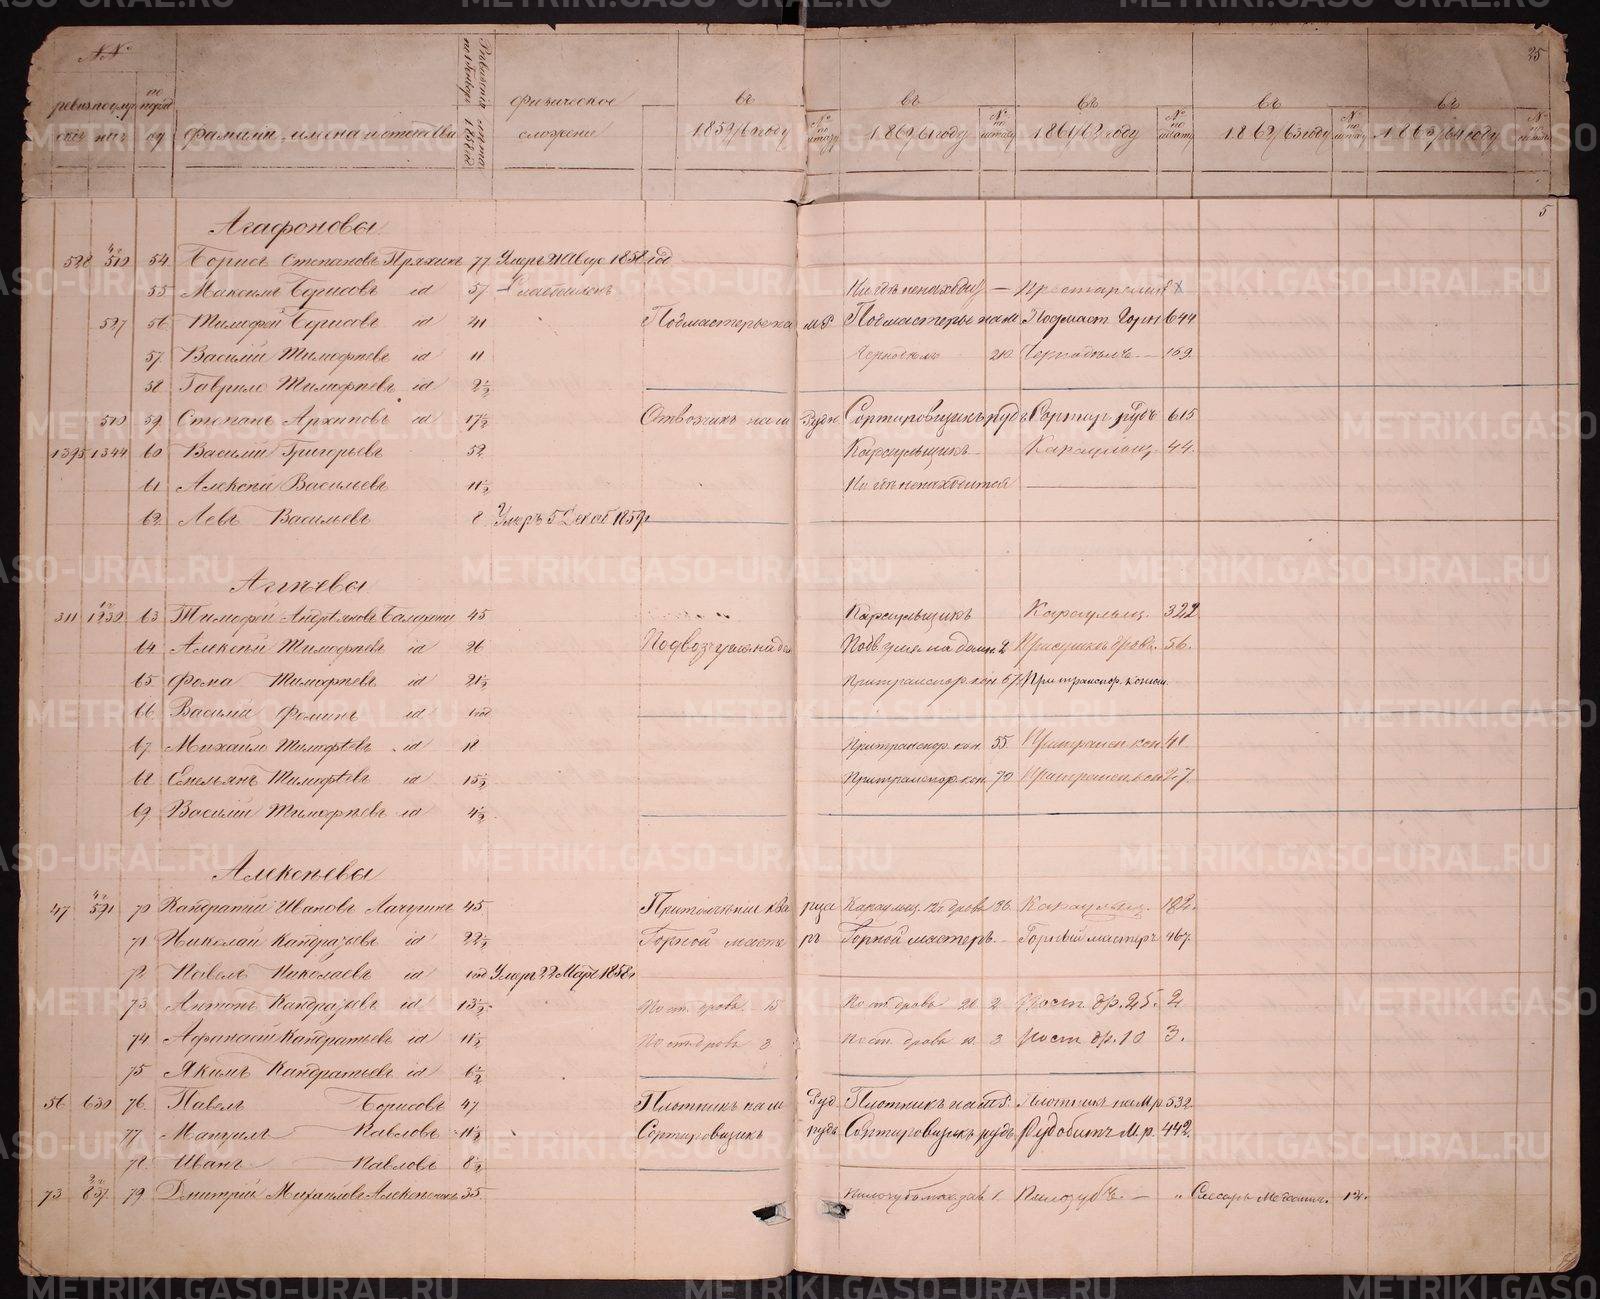 №№
25
ревиз
по
поряд
фамилии, имена и отчества
физическое
сложение
въ
1859/60 году
№ по штату
въ
1860/61 году
№ по штату
въ
1861/62 году
№ по штату
въ
1862/63 году
№ по штату
въ
1863/64 году
№ по
5
Агафоновы
528 519 54 Борисъ Степановъ Пряхинъ 77 Умеръ 1858 год
55 Максимъ Борисовъ id 57 Нигдѣ ненаход —
527 56 Тимофей Борисовъ id 41 Подмастерье на Подмастерье Подмаст. Горн 644
57 Василий Тимофѣевъ id 11 Чернодѣлъ 210 169
58 Гаврило Тимофѣевъ id 2½
519 59 Степанъ Архиповъ id 17½ Отвозчикъ на Рудн Сортировщикъ рудъ Сортир рудъ 615
1395 1344 60 Василий Григорьевъ 52 Караульщикъ Караульщ. 44.
61 Алексѣй Васильевъ 11½ Нигдѣ ненаходится
62 Левъ Васильевъ 8 Умеръ 5 Декаб 1859г
Агѣевы
311 1232 63 Тимофей Андреяновъ 45 Караульщикъ Караульщ. 322
64 Алексѣй Тимофѣевъ id 26 Подвоз. угля на до Подв. угля на домн. 2 дровъ. 56.
65 Фома Тимофѣевъ id 21½ При транспор. кон. 67 При транспор. конюш.
66 Василий Фоминъ id 1 год
67 Михайло Тимофѣевъ id 18 При транспор. кон. 55 При трансп кон 41
68 Емельянъ Тимофѣевъ id 15½ При транспор. кон. 70 При трансп. кон 27
69 Василий Тимофѣевъ id 4½
Алексѣевы
47 591 70 Кандратий Ивановъ Лачугинъ 45 При толченiи ква рца Караульщ. 12 д дровъ 36. Караульщ. 182.
71 Николай Кандратьевъ id 22½ Горной масте ръ Горной мастеръ. Горный мастеръ 467.
72 Павелъ Николаевъ id 1 год Умеръ 22 Март 1858г
73 Антонъ Кандратьевъ id 13½ Пост. дровъ 15 Пост. дровъ 20. 2 Пост. др. 25. 2
74 Афанасий Кандратьевъ id 11½ Пост. дровъ 8 Пост. дровъ 10. 3 Пост др. 10 3.
75 Якимъ Кандратьевъ id 6½
56 630 76. Павелъ Борисовъ 47 Плотникъ на Руд Плотникъ на Плотникъ на М.р 532
77 Павловъ 11½ Сортировщикъ рудъ Сортировщикъ рудъ Рудобитъ М.р. 442
78 Иванъ Павловъ 8½
73 837 79 Дмитрий Михайловъ 35 Пилозубъ 1. Пилозубъ. — „ Слесарь 12.
METRIKI.GASO-URAL.RU